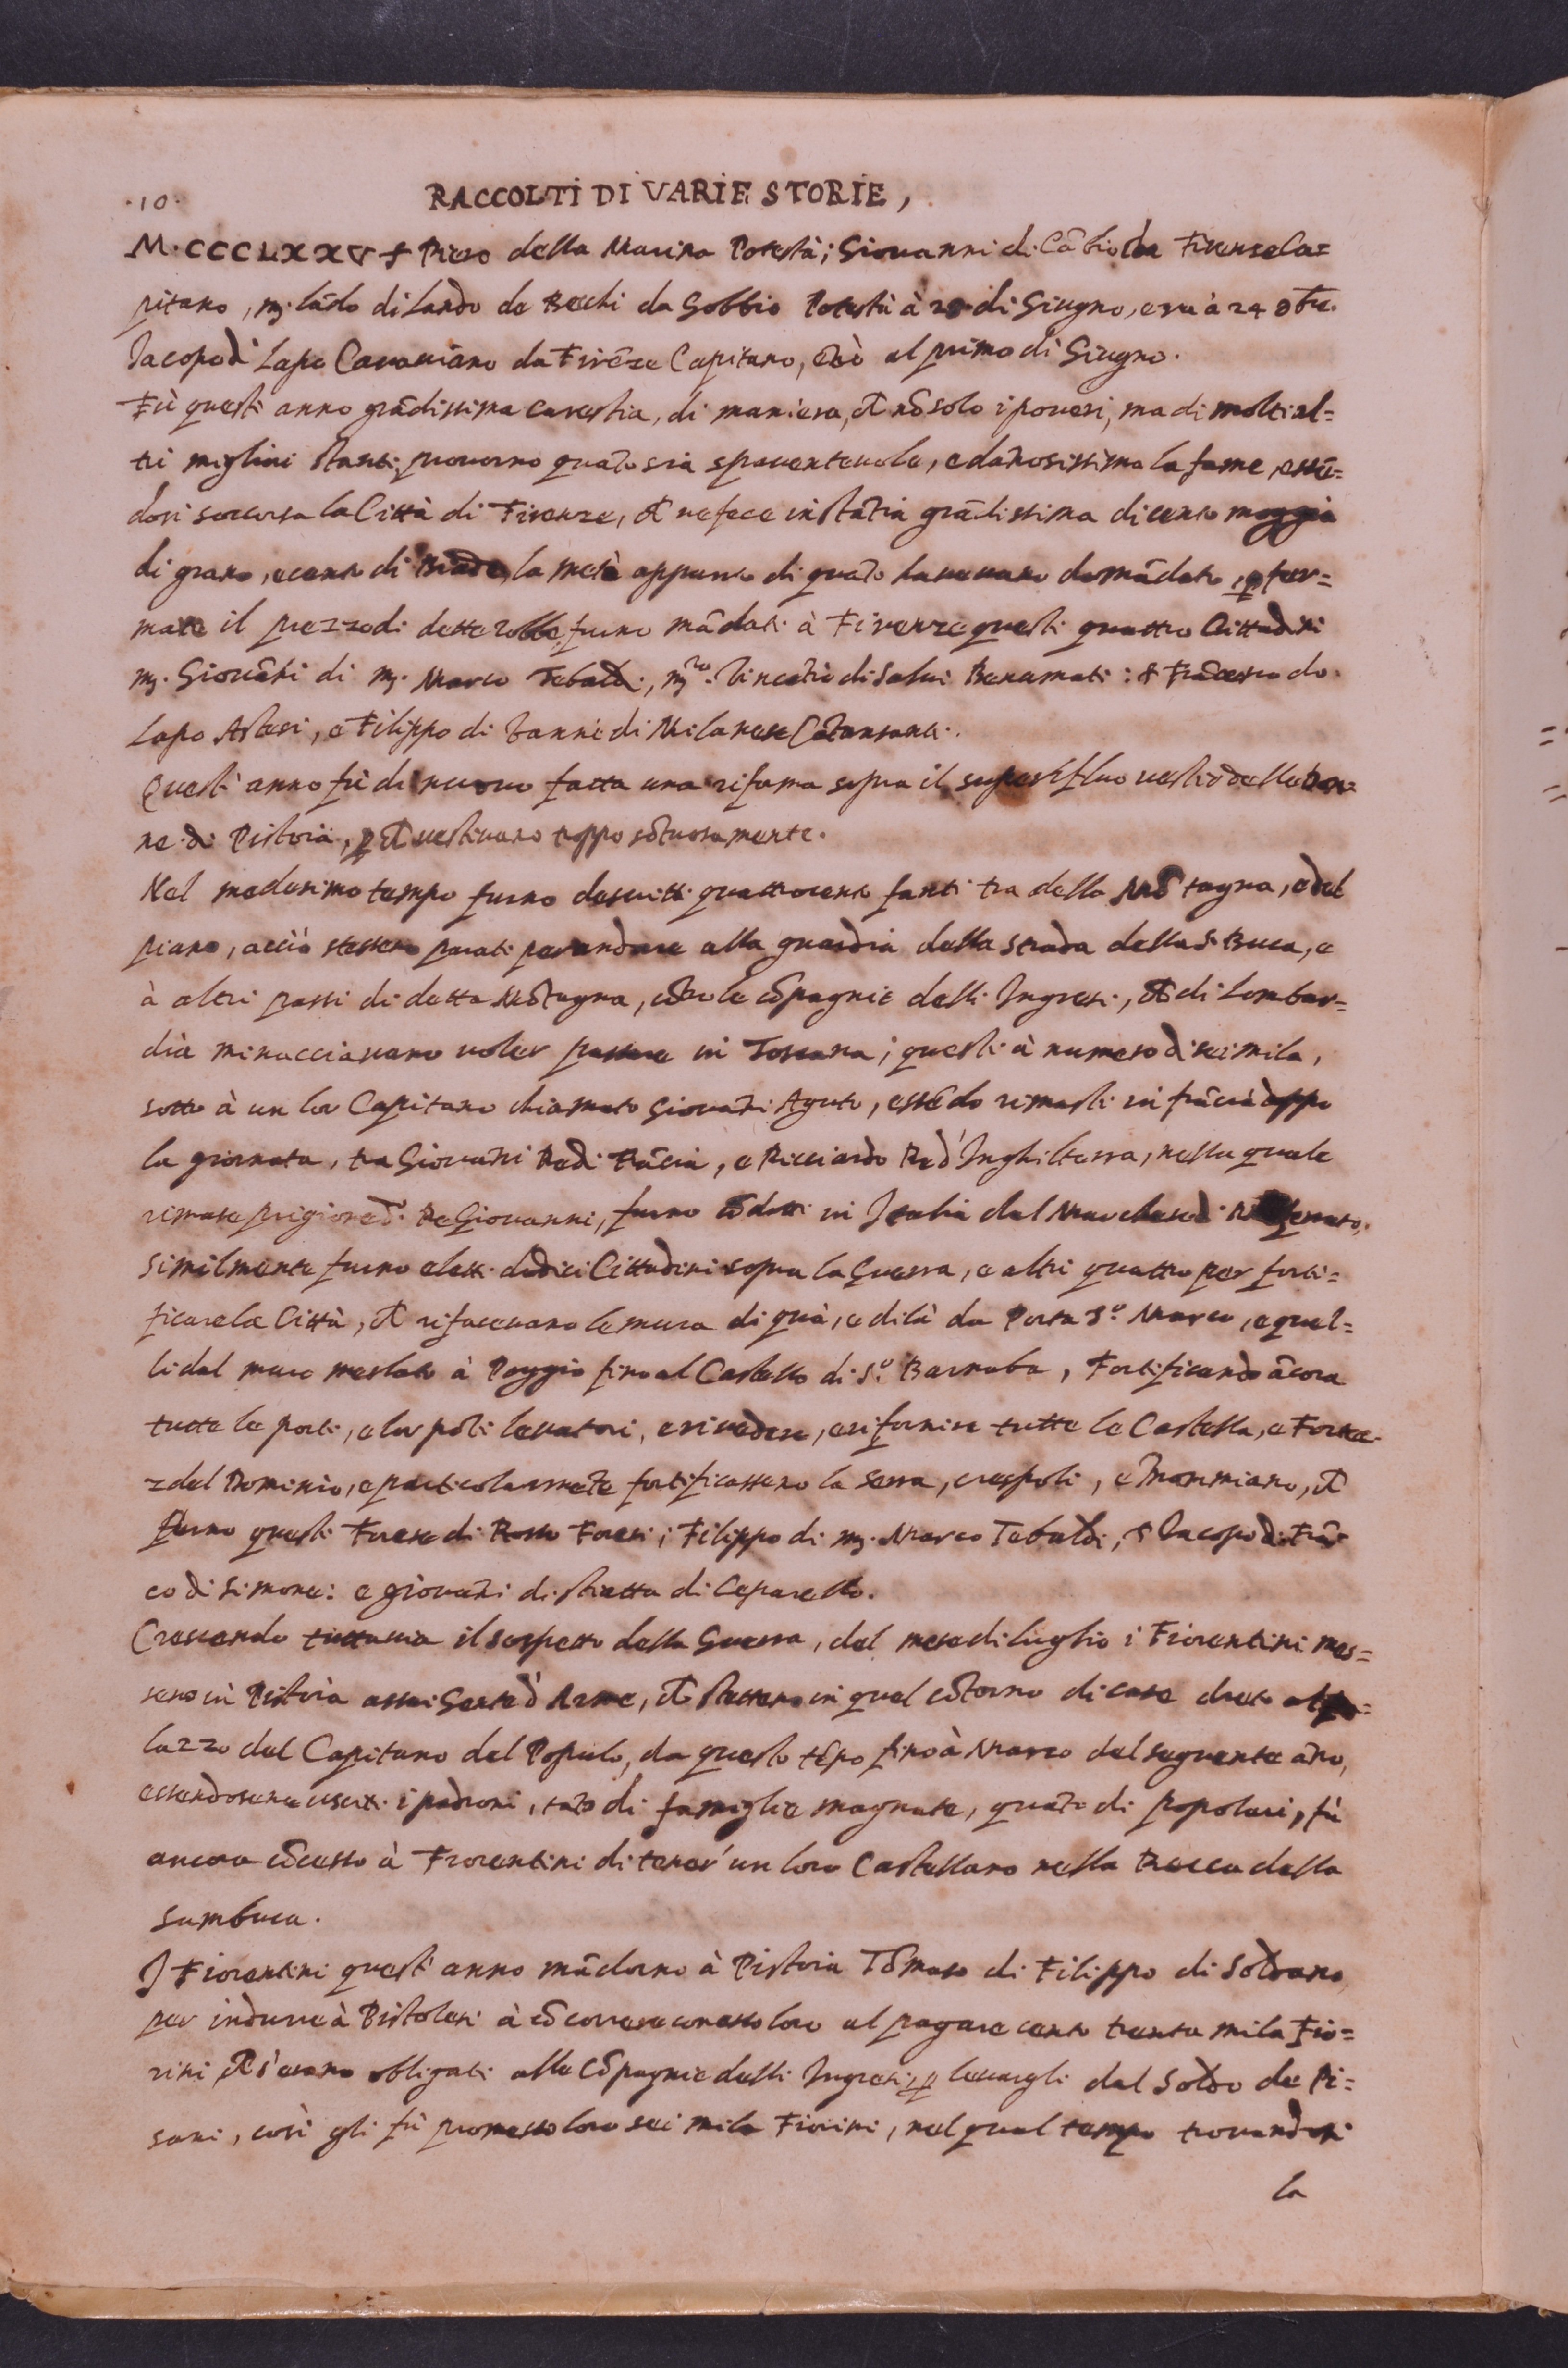 ·10· RACCOLTI DI VARIE STORIE,
M·CCCLXXV Piero della Marina Potestà; Giovanni di Cãbio da Firenze Ca=
pitano, mʒ. Lãdo di Lando de Becchi da Gobbio Potestà à 28 di Giugno, e ra à 24 8bre.
Iacopo di Lapo Cavaciano da Firẽze Capitano, cioè al primo di Giugno.
Fù quest'anno grãdissima carestia, di maniera, ch̃ nõ solo i poveri, ma di molti al=
tri migliori stanti provorno quãto sia spaventevole, e dañosissima la fame, essẽ=
dosi soccorsa la Città di Firenze, ch̃ ne fece instãtia grãdissima di cento moggia
di grano, e cento di Biade, la metà appunto di quãto havevano domãdato, p̱ fer=
mare il prezzo di dette robbe furno mãdati à Firenze questi quattro Cittadini
mʒ. Giovãni di mʒ. Marco Tebaldi, mʒro. Vincẽtio di Salvi Bonamati: S. Frãcesco do.
Lapo Astesi, e Filippo di Vanni di Milanese Cãtansanti.
Quest'anno fù di nuovo fatta una riforma sopra il superfluo vestir delle Don=
ne di Pistoia, p̱ ch̃ vestivano troppo sõtuosamente.
Nel medesimo tempo furno descritti quattrocento fanti tra della Mõtagna, e del
piano, acciò stessero parati per andare alla guardia della strada della S. Buca, e
à altri passi di detta Mõtagna, cõtro le cõpagnie delli Ingresi, ch̃ di Lombar=
dia minacciavano voler passare in Toscana; questi à numero di seimila,
sotto à un lor Capitano chiamato Giovãni Aguto, essẽdo rimasti in frãcia doppo
la giornata, tra Giovãni Re di Frãcia, e Ricciardo Re d'Inghilterra, nella quale
rimase prigione d. Re Giovanni, furno cõdotti in Italia dal Marchese di Mõferrato,
similmente furno eletti dodici Cittadini sopra la Guerra, e altri quattro per forti=
ficare la Città, ch̃ rifacevano le mura di quà, e di là da Porta S.o Marco, e quel=
li dal muro merlato à Poggio fino al Castello di S.o Barnaba, Fortificando ãcora
tutte le porti, e lor põti levatori, e rivedere, e rifornire tutte le Castella, e Fortez=
ze del Dominio, e particolarmẽte fortificassero la Serra, crespoli, e Mammiano, ch̃
furno questi Forese di Rosso Foresi; Filippo di mʒ. Marco Tebaldi, S. Iacopo di Frã=
co di Simone: e giovãni di stiatta di Ceparello.
Crescendo tuttavia il sospetto della Guerra, del mese di luglio i Fiorentini mes=
sero in Pistoia assai Gente d'Arme, ch̃ stettero in quel cõtorno di case dreto al pa=
lazzo del Capitano del Popolo, da questo tẽpo fino à Marzo del seguente año,
essendosene usciti i padroni, tãto di famiglie magnate, quãto di popolari, fù
ancora cõcesso à Fiorentini di tener' un loro Castellano nella Rocca della
Sambuca.
I Fiorentini quest'anno mãdorno à Pistoia Tõmaso di Filippo di Soldano
per indurre à Pistolesi à cõcorrere con esso loro al pagare cento trenta mila Fio=
rini ch̃ s'erano obligati alle Cõpagnie delli Ingresi, p̱ levargli dal Soldo de Pi=
sani, così gli fù promesso loro sei mila Fiorini, nel qual tempo trovandosi
la